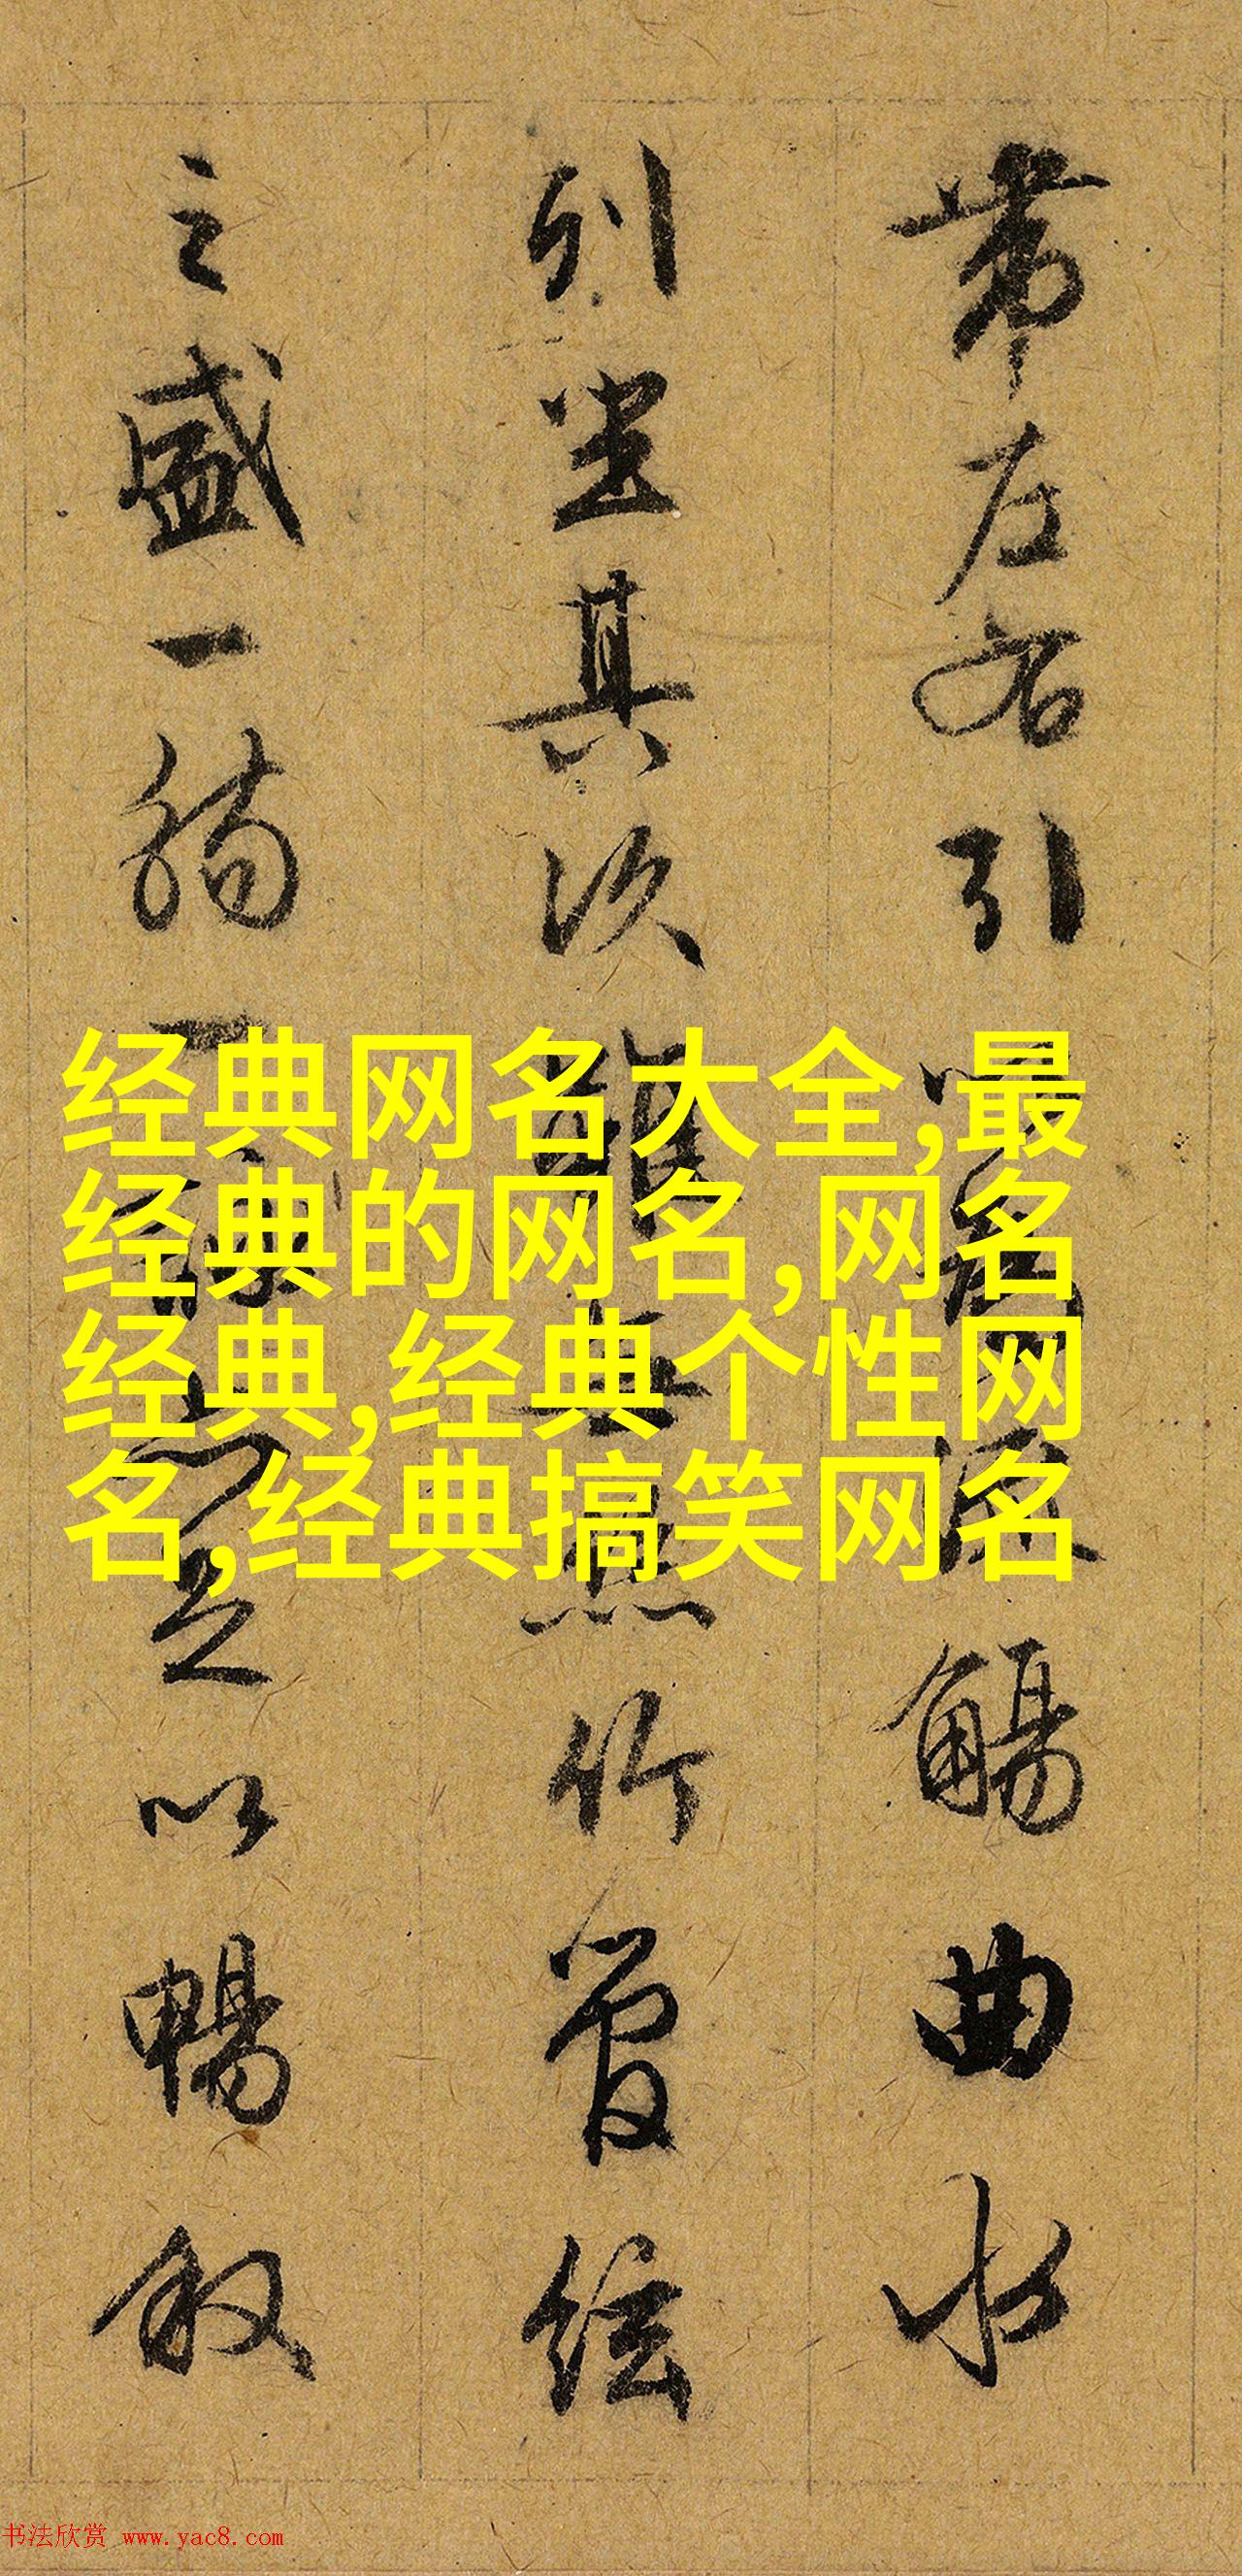 帶左右引以為流觴曲水
列坐其次雖無絲竹管絃
之盛一觴一詠亦足以暢敘
经典网名大全,最
经典的网名,网名
经典,经典个性网
名,经典搞笑网名
书法欣赏 www.yac8.com